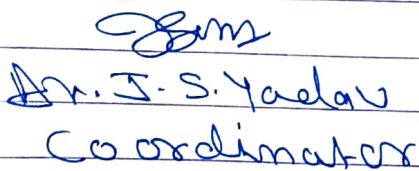 Dr. J. S. Yadav
Coordinator